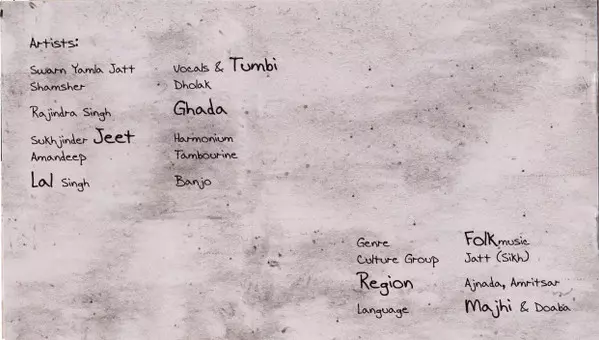 Artists:
Swarn Yamla Jatt Vocals & Tumbi
Shamsher Dholak
Rajindra Singh Ghada
Sukhjinder Jeet Harmonium
Amandeep Tambourine
Lal Singh Banjo
Genre Folkmusic
Culture Group Jatt (Sikh)
Region Ajnada, Amritsar
Language Majhi & Doaba